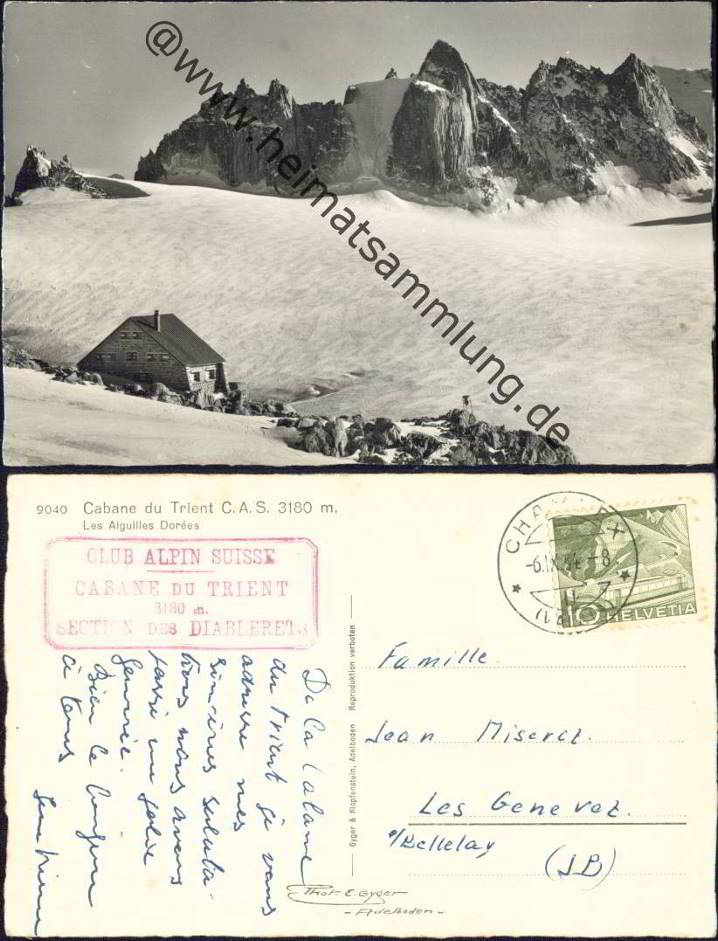 @www.heimatsammlung.de
9040 Cabane du Trient C.A.S. 3180 m.
Les Aiguilles Dorées
CLUB ALPIN SUISSE
CABANE DU TRIENT
3180 m.
SECTION DES DIABLERETS
CHAMPEX
HELVETIA
10
De la Cabane
du Trient je vous
adresse mes
sincères saluta-
tions nous avons
passé une
Bien le bonjour
à tous
Gyger & Klopfenstein, Adelboden Reproduktion verboten
Famille
Jean Miserez.
Les Genevez.
s/Bellelay
(J.B)
Phot. E. Gyger
- Adelboden -